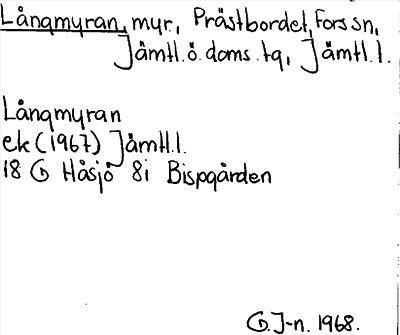 Långmyran, myr, Prästbordet, Fors sn,
Jämtl. ö. doms. tg, Jämtl. l.
Långmyran
ek (1967) Jämtl.l.
18 G Håsjö 8i Bispgården
G. J-n. 1968.